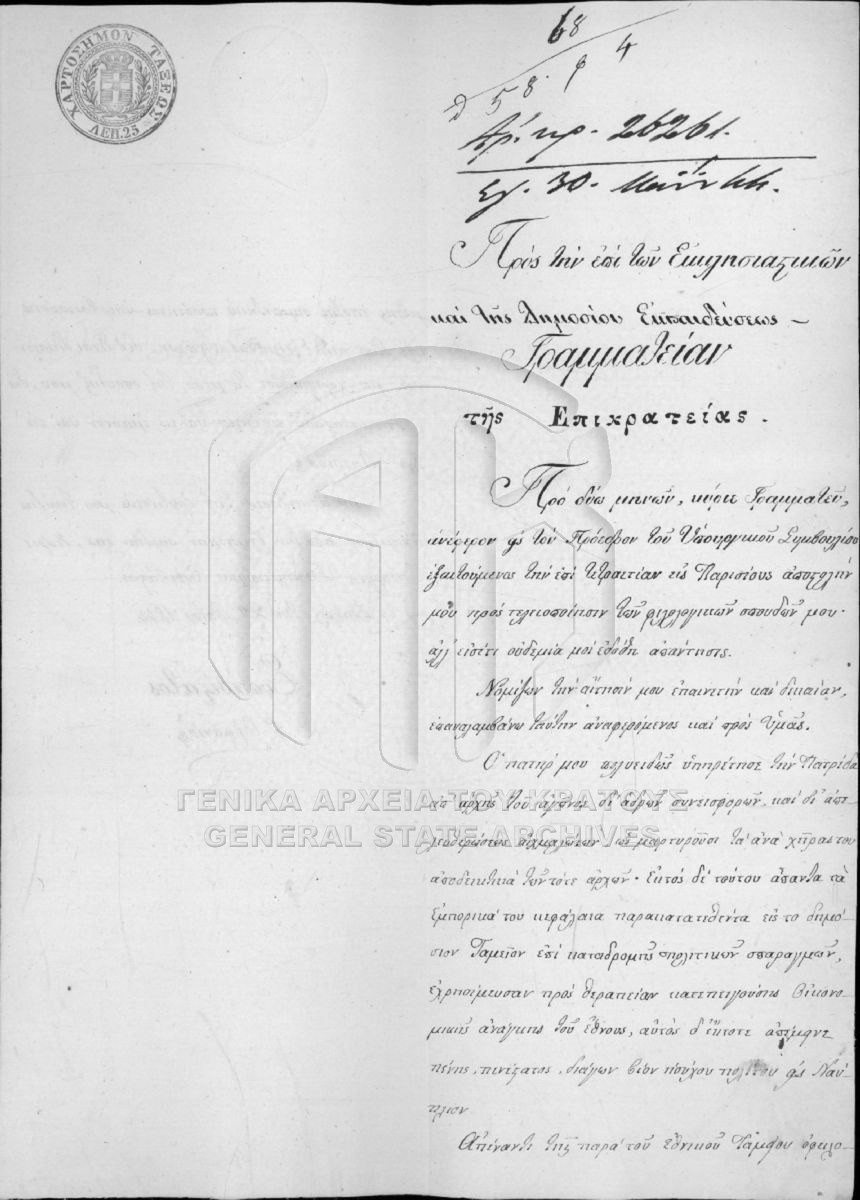 ΧΑΡΤΟΣΗΜΟΝ ΤΑΞΕΩΣ
ΛΕΠ. 25
68
58 4
Αρ. πρ. 26261.
30. 44.
Πρὸς τὴν ἐπὶ τῶν Ἐκκλησιαστικῶν
καὶ τῆς Δημοσίου Ἐκπαιδεύσεως –
Γραμματείαν
τῆς Ἐπικρατείας.
Πρὸ δύω μηνῶν, κύριε Γραμματεῦ,
ἀνέφερον εἰς τὸν Πρόεδρον τοῦ Ὑπουργικοῦ Συμβουλίου
ἐξαιτούμενος τὴν ἐπὶ τετραετίαν εἰς Παρισίους ἀποστολήν
μου πρὸς τελειοποίησιν τῶν φιλολογικῶν σπουδῶν μου·
ἀλλ' εἰσέτι οὐδεμία μοὶ ἐδόθη ἀπάντησις.
Νομίζων τὴν αἴτησίν μου ἐπαινετὴν καὶ δικαίαν,
ἐπαναλαμβάνω ταύτην ἀναφερόμενος καὶ πρὸς Ὑμᾶς.
Ὁ πατήρ μου πολυειδῶς ὑπηρέτησε τὴν Πατρίδα
ἀπ' ἀρχῆς τοῦ ἀγῶνος δι' ἁδρῶν συνεισφορῶν, καὶ δι' ἀπε-
λευθερώσεως αἰχμαλώτων ὡς μαρτυροῦσι τὰ ἀνὰ χεῖρας του
ἀποδεικτικὰ τῶν τότε ἀρχῶν· Ἐκτὸς δὲ τούτου ἅπαντα τὰ
ἐμπορικά του κεφάλαια παρακατατεθέντα εἰς τὸ δημό-
σιον Ταμεῖον ἐπὶ καταδρομῆς πολιτικῶν σπαραγμῶν,
ἐχρησίμευσαν πρὸς θεραπείαν κατεπειγούσης οἰκονο-
μικῆς ἀνάγκης τοῦ ἔθνους, αὐτὸς δ' ἔκτοτε ἀπέμεινε
πένης, πενέστατος, διάγων βίον ἡσύχου πολίτου εἰς Ναύ-
πλιον
Ἀπέναντι τῆς παρὰ τοῦ ἐθνικοῦ Ταμείου ὀφειλο-
ΓΕΝΙΚΑ ΑΡΧΕΙΑ ΤΟΥ ΚΡΑΤΟΥΣ
GENERAL STATE ARCHIVES